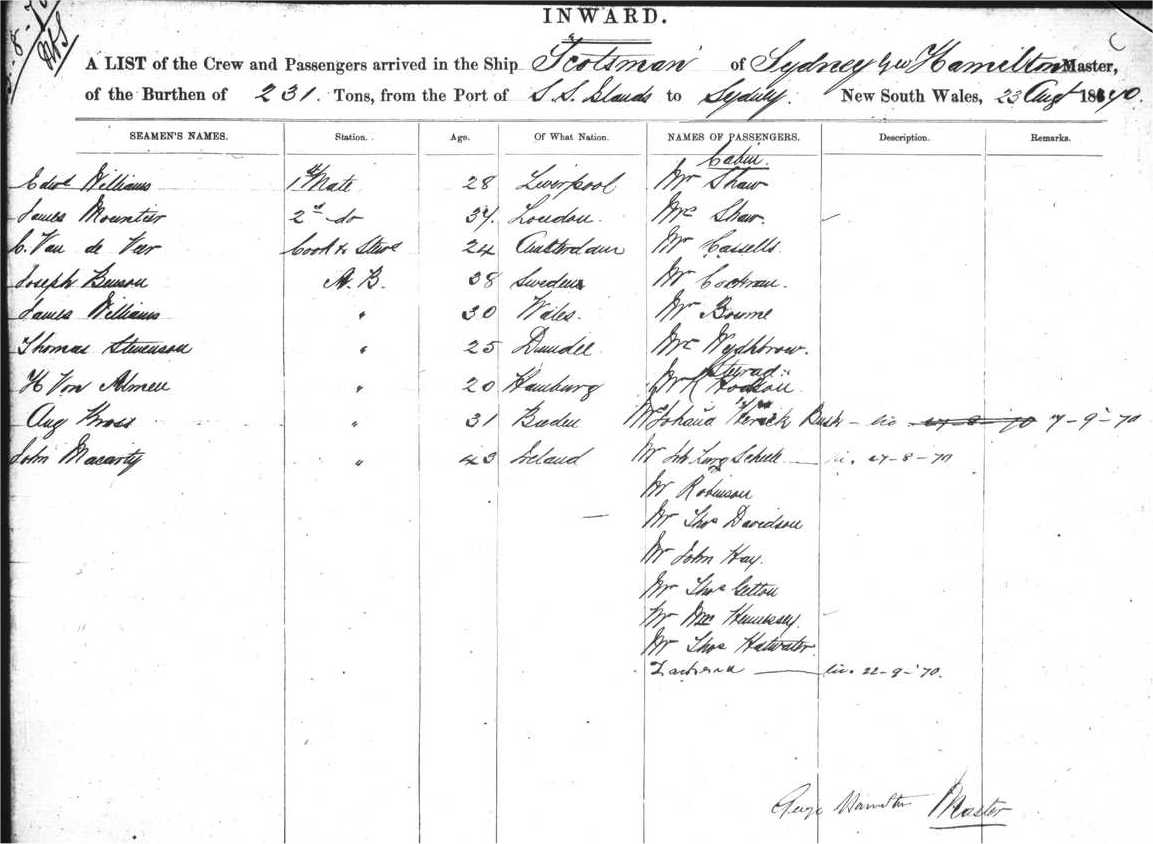 INWARD.
A LIST of the Crew and Passengers arrived in the Ship Scotsman of Sydney Geo Hamilton Master,
of the Burthen of 231. Tons, from the Port of S. S. Islands to Sydney. New South Wales, 23 Augt 1870.
SEAMEN'S NAMES. Station. Age. Of What Nation. NAMES OF PASSENGERS. Description. Remarks.
Cabin.
Edwd Williams 1st Mate 28 Liverpool Mr Shaw
James Mountier 2nd do 34. London. Mrs Shaw.
C. Van de Veer Cook & Stewd 24 Amsterdam Mr Cassells.
Joseph Benson A. B. 38 Sweden Mr Cochran.
James Williams " 30 Wales. Mr Bourne
Thomas Stevenson " 25 Dundee Mr
Steerad:
H Von Almen " 20 Hamburg Mr Hodson
Aug Kross " 31 Baden Mr Johana Bush - 7-9-'70
John Macarty " 43 Ireland Mr 27-8-70
Mr Robinson
Mr Thos Davidson
Mr John Hay.
Mr Thos Getton
Mr Hennessey.
Mr Thos
22-9-'70.
George Hamilton Master